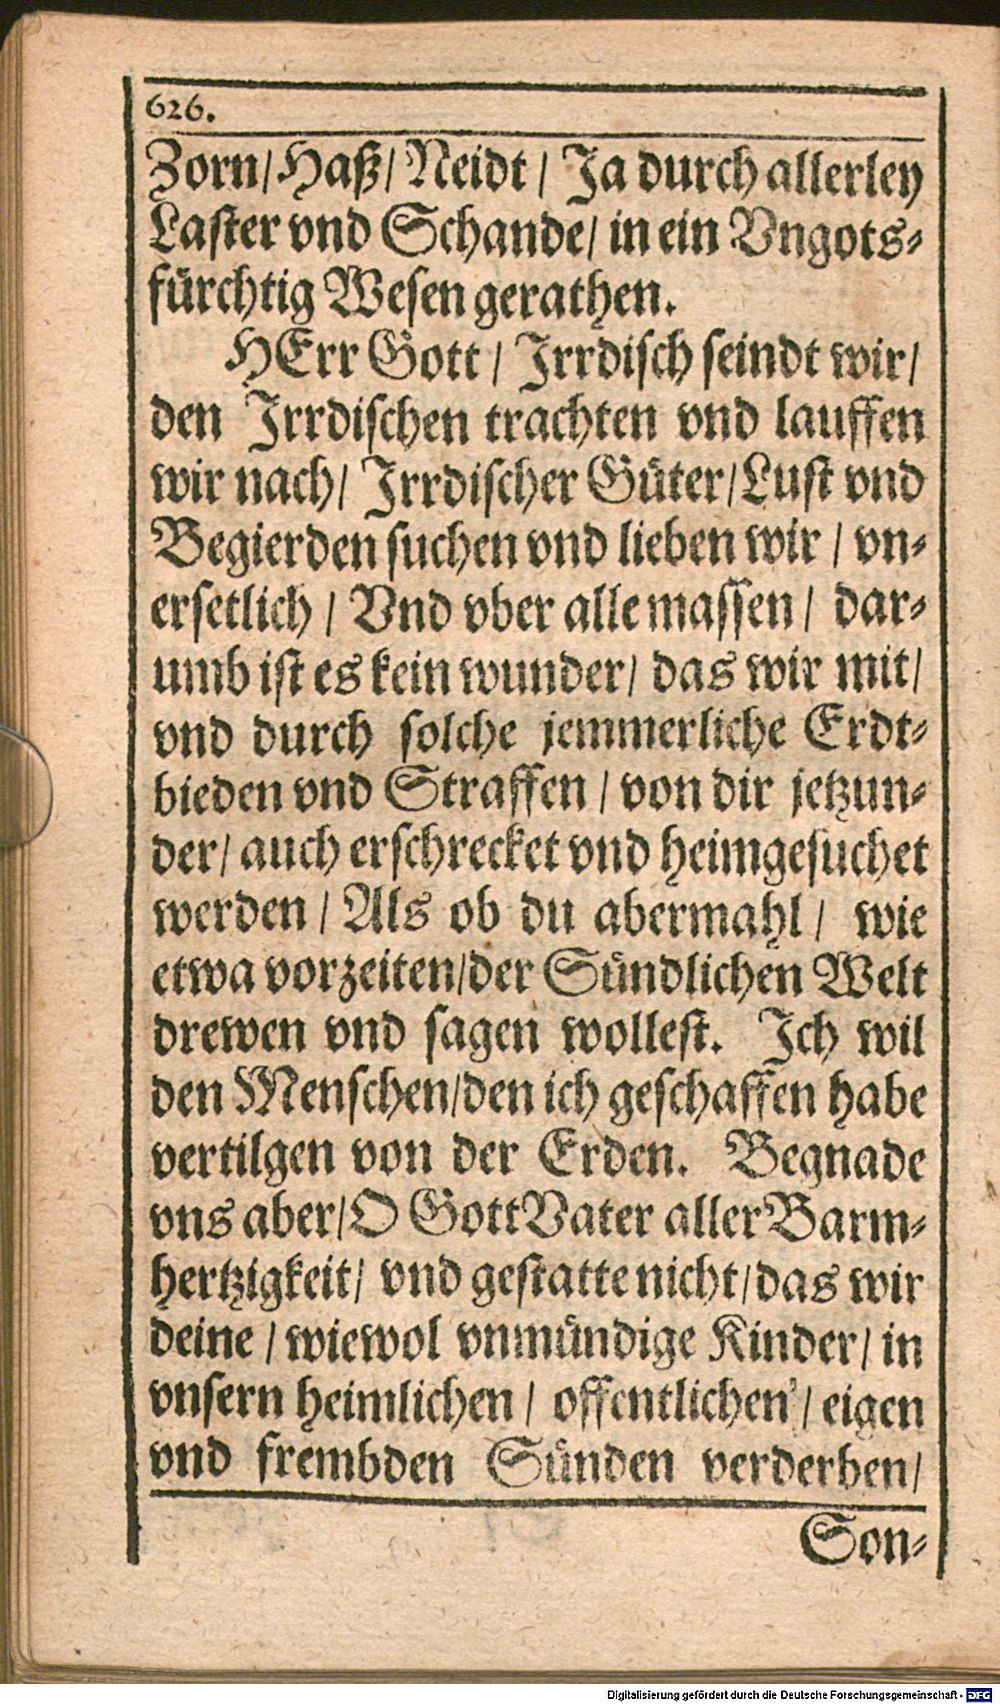 626.
Zorn/ Haß/ Neidt/ Ja durch allerley
Laster vnd Schande/ in ein Vngots-
fürchtig Wesen gerathen.
HErr Gott/ Irrdisch seindt wir/
den Irrdischen trachten vnd lauffen
wir nach/ Irrdischer Güter/ Lust vnd
Begierden suchen vnd lieben wir/ vn-
ersetlich/ Vnd vber alle massen/ dar-
umb ist es kein wunder/ das wir mit/
vnd durch solche jemmerliche Erdt-
bieden vnd Straffen/ von dir jetzun-
der/ auch erschrecket vnd heimgesuchet
werden/ Als ob du abermahl/ wie
etwa vorzeiten/ der Sündlichen Welt
drewen vnd sagen wollest. Ich wil
den Menschen/ den ich geschaffen habe
vertilgen von der Erden. Begnade
vns aber/ O Gott Vater aller Barm-
hertzigkeit/ vnd gestatte nicht/ das wir
deine/ wiewol vnmündige Kinder/ in
vnsern heimlichen/ offentlichen/ eigen
vnd frembden Sünden verderben/
Son-
Digitalisierung gefördert durch die Deutsche Forschungsgemeinschaft - DFG